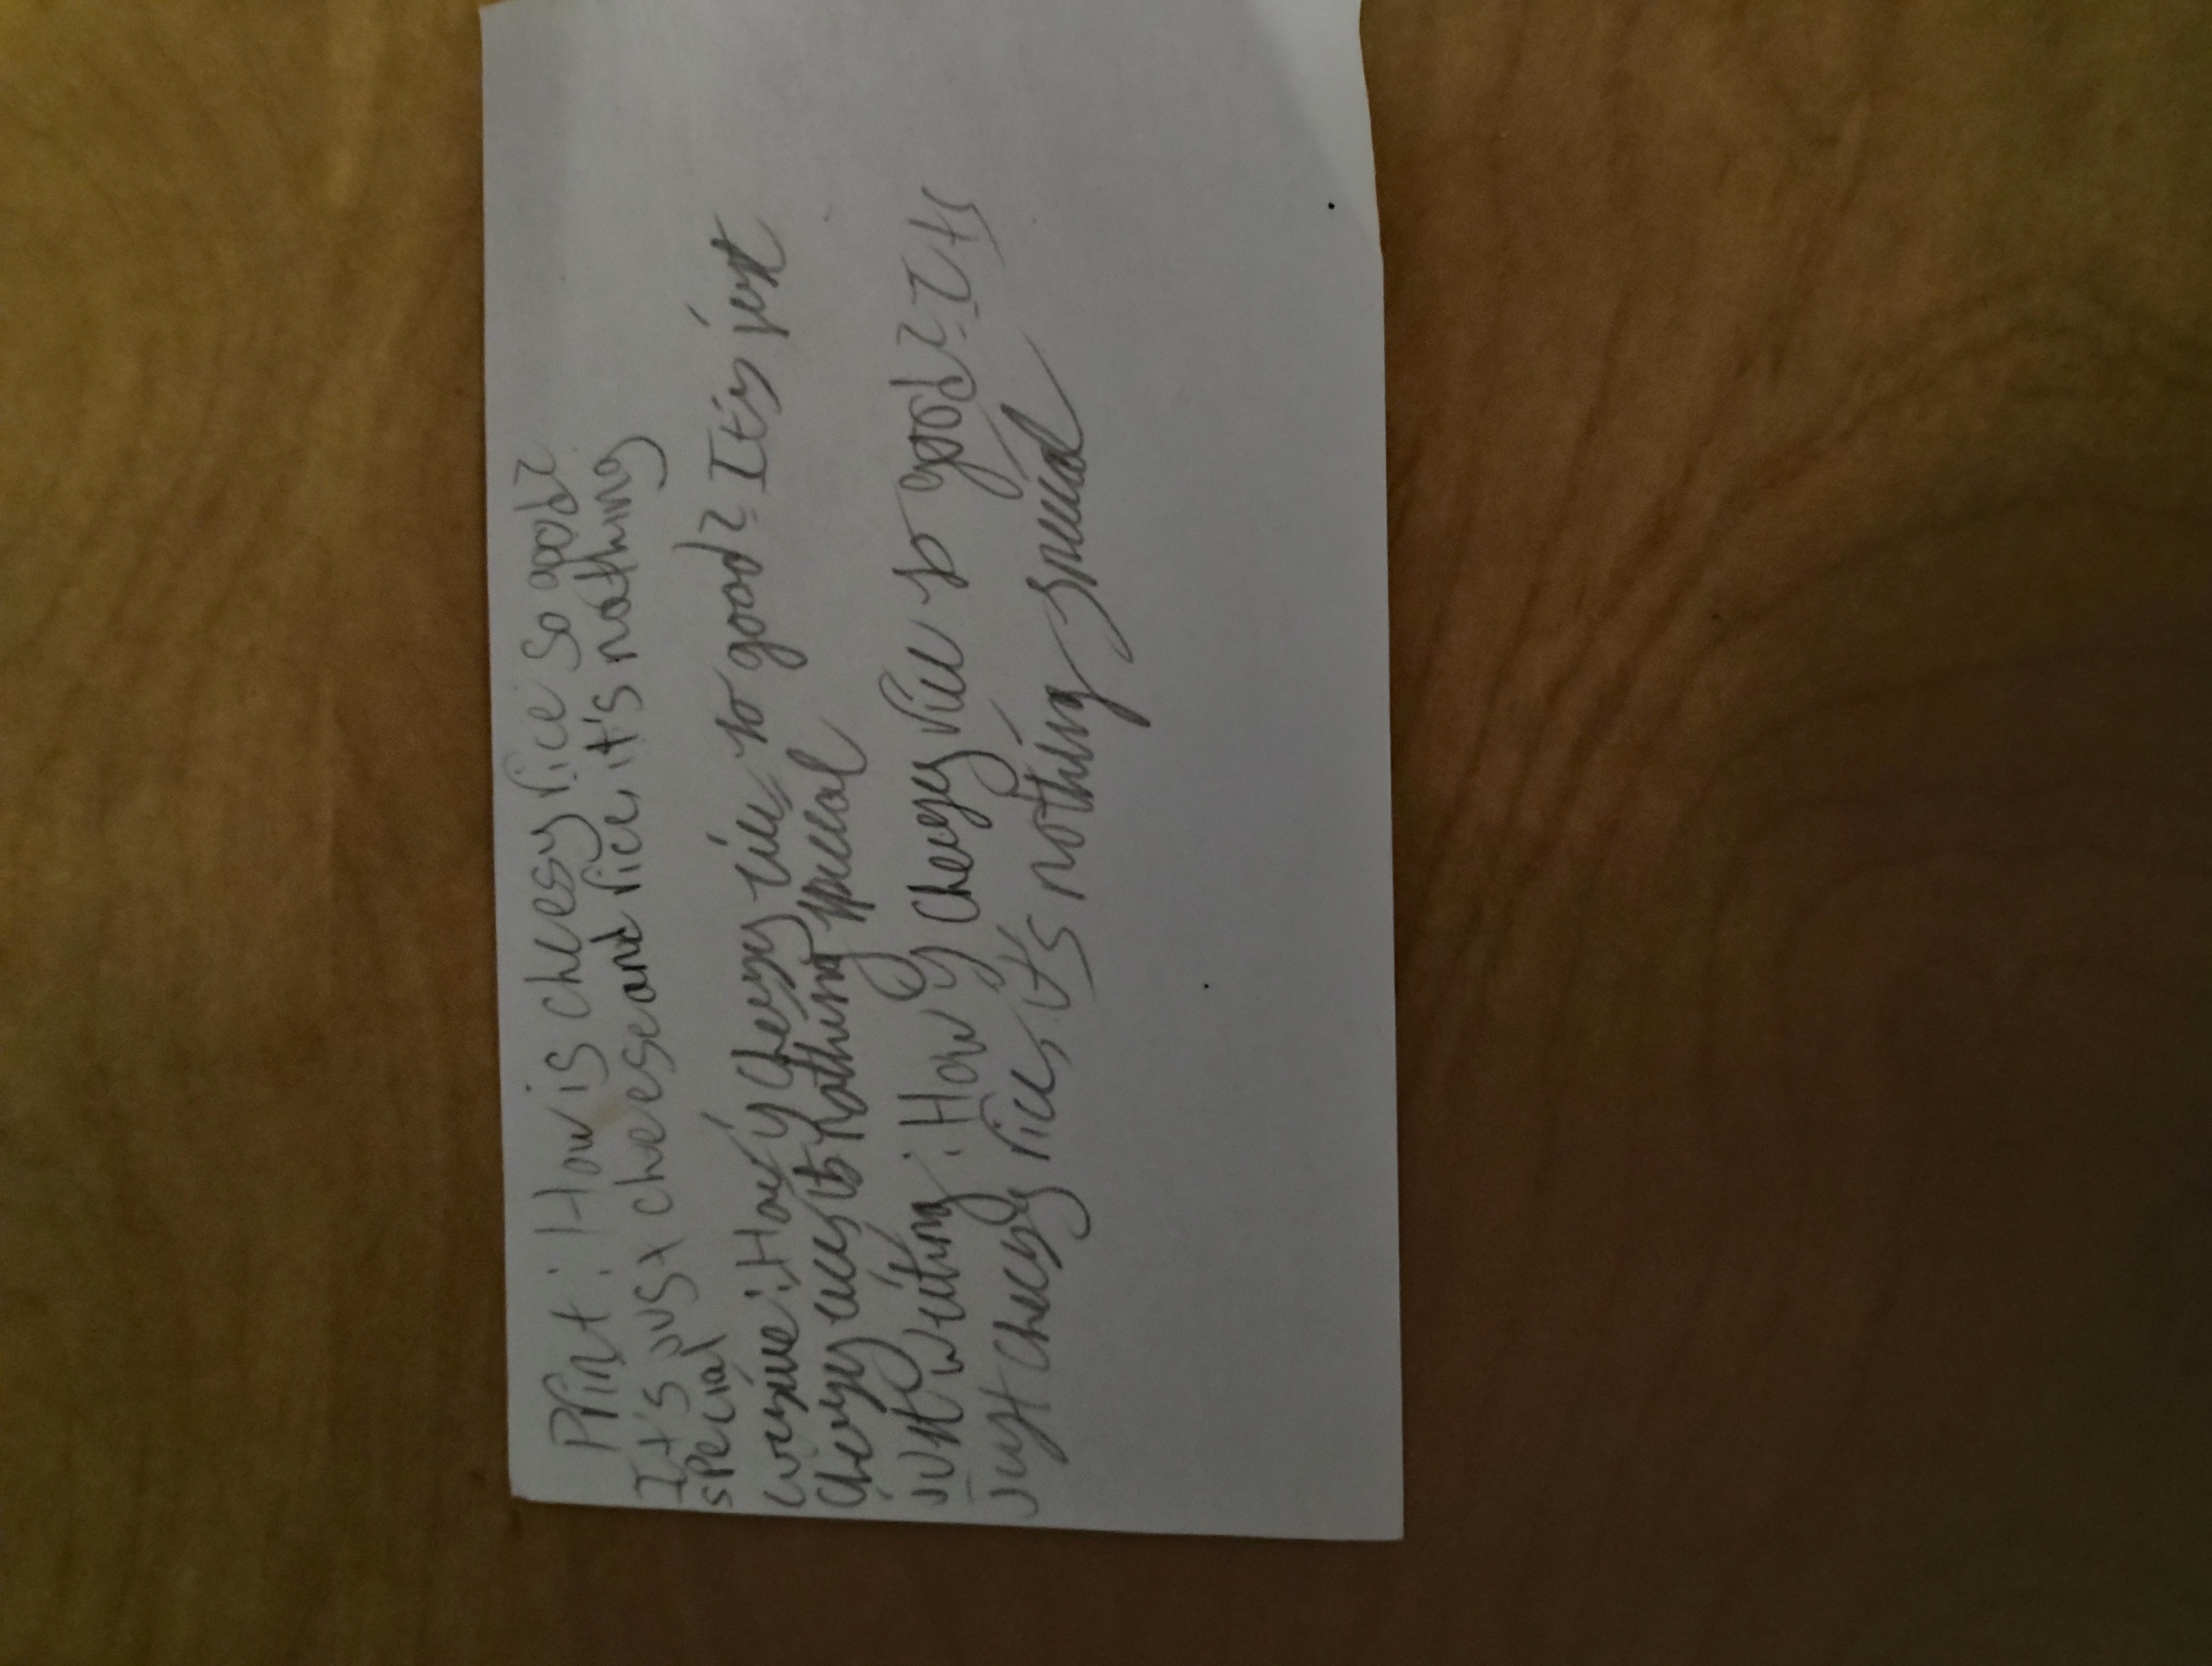 Print: How is cheesy rice so good?
It's just cheese and rice, it's nothing
special
cursive: How is cheesy rice so good? It's just
cheesy rice, it's nothing special
just writing: How is cheesy rice so good? It's
just cheesy rice, it's nothing special